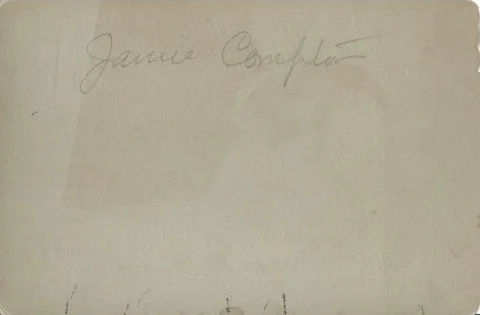 Jamie Compton